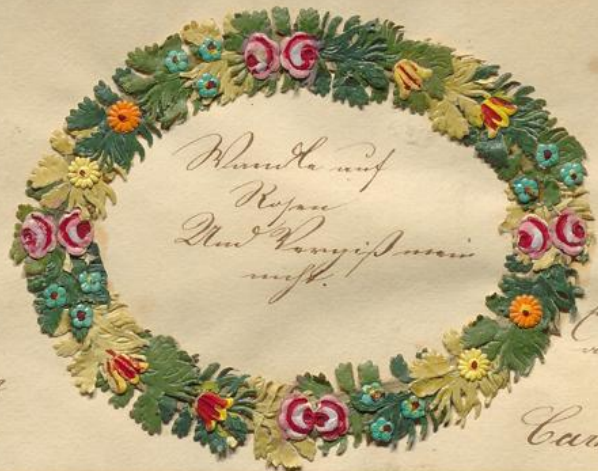 Wandle auf
Rosen
Und Vergiß mein
nicht.